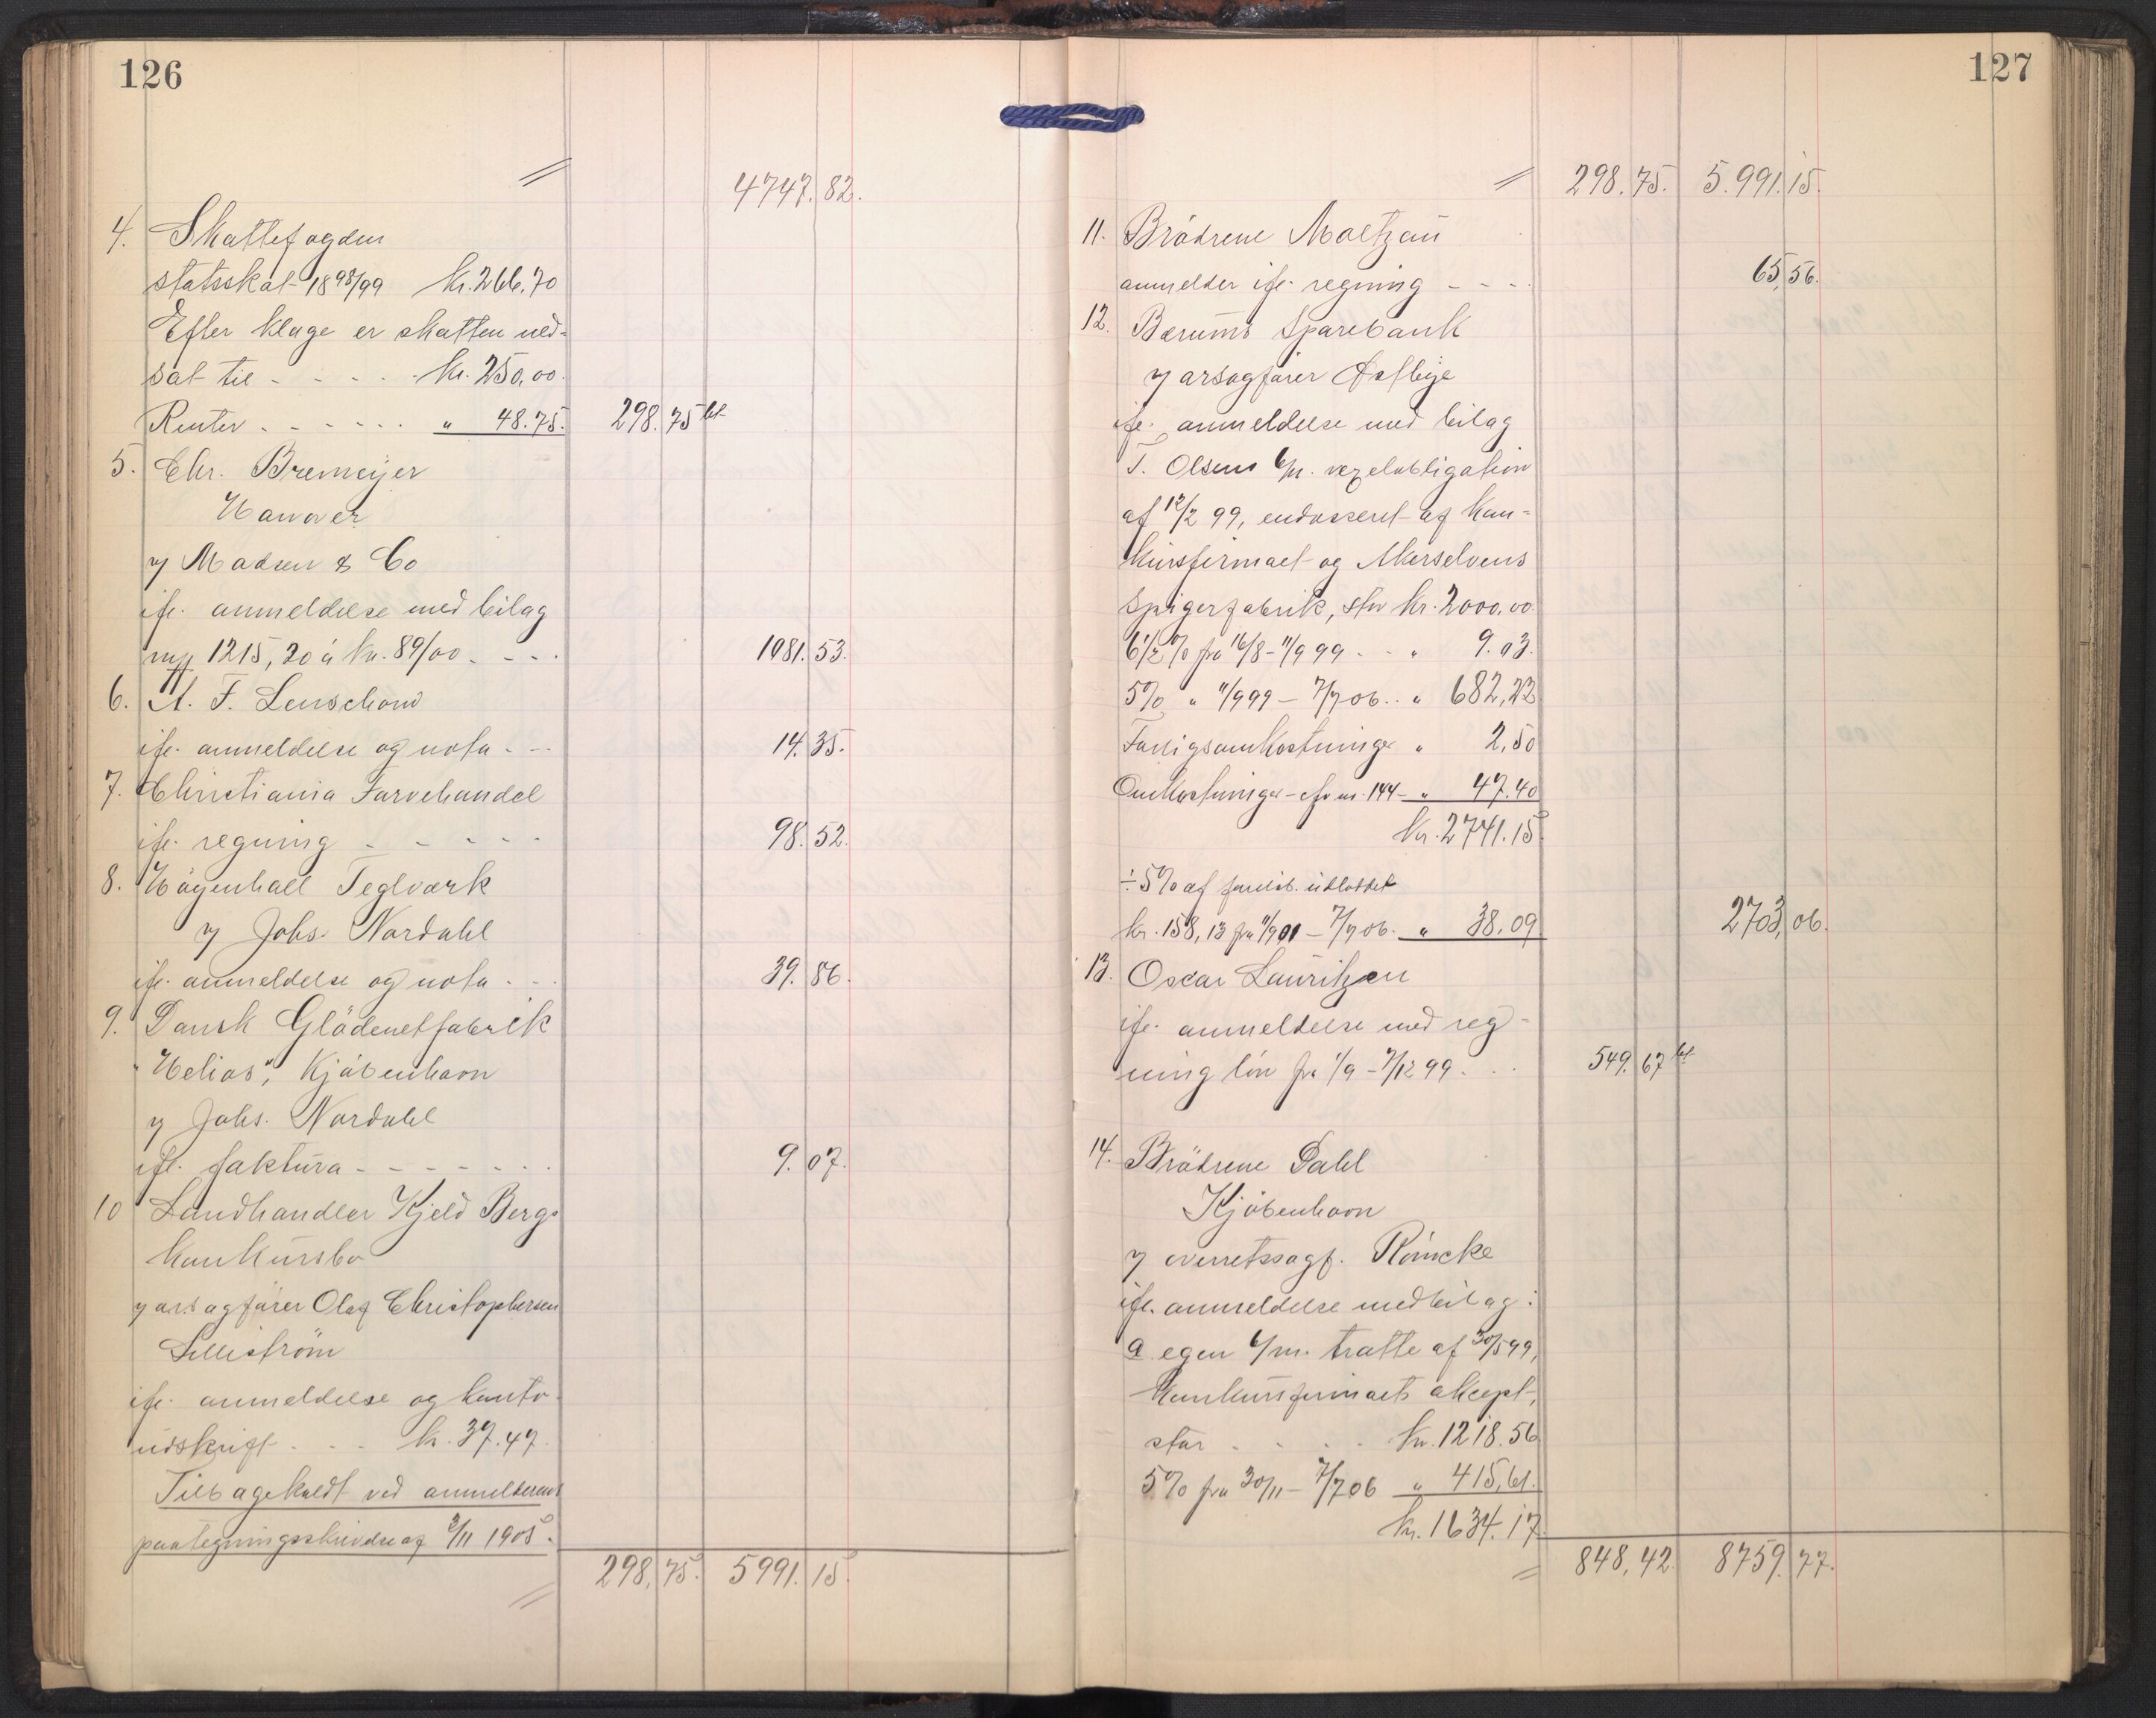 126
4747.82.
4. Skattefogden
statsskat 1898/99 kr. 266.70
Efter klage er skatten ned-
sat til - - - - kr. 250,00.
Renter - - - - - - " 48.75. 298.75 bt
5. Chr. Bremeijer
Hanover
v/ Madsen & Co
ifl. anmeldelse med bilag
1215,20 à kr. 89/00 - - - 1081.53.
6. A. F. Lenschow
ifl. anmeldelse og nota - - - 14.35.
7. Christiania Farvehandel
ifl. regning - - - - - 98.52.
8. Högenhall Teglværk
v/ Johs. Nordahl
ifl. anmeldelse og nota - - - 39.86.
9. Dansk Glödenetfabrik
"Helios", Kjöbenhavn
v/ Johs. Nordahl
ifl. faktura - - - - - - - 9.07.
10 Landhandler Kjeld Bergs
konkursbo
v/ o.r.sagförer Olaf Christophersen
Lilleström
ifl. anmeldelse og konto-
udskrift - - - kr. 37.47.
Tilbagekaldt ved anmelderens
paategningsskrivelse af /11 1905.
298.75. 5991.15.
127
298.75. 5.991.15.
11. Brödrene Moltzau
anmelder ifl. regning - - - - 65,56.
12. Bærums Sparebank
v/ o.r.sagförer
ifl. anmeldelse med bilag
T. Olsens 6/m. vexelobligation
af 12/2 99, endosseret af kon-
kursfirmaet og Akerselvens
Spigerfabrik, stor kr. 2000,00.
6 1/2 % fra 16/8 - 11/9 99 - - " 9.03.
5% " 11/9 99 - 7/7 06 - - " 682,22
Forligsomkostninger " 2,50
Omkostninger - cfr nr. 144 - " 47.40
kr. 2741.15.
÷ 5% af forelöb. udloddet
kr. 158,13 fra 11/9 01 - 7/7 06. " 38.09 2703,06.
13. Oscar Lauritzen
ifl. anmeldelse med reg-
ning lön fra 1/9 - 7/12 99 - - 549.67 bt
14. Brödrene Dahl
Kjöbenhavn
v/ overretssagf. Röincke
ifl. anmeldelse med bilag:
a egen 6/m. tratte af 30/5 99,
konkursfirmaets akcept,
stor - - - - kr. 1218.56
5% fra 30/11 - 7/7 06 " 415,61.
kr. 1634.17.
848,42. 8759.77.